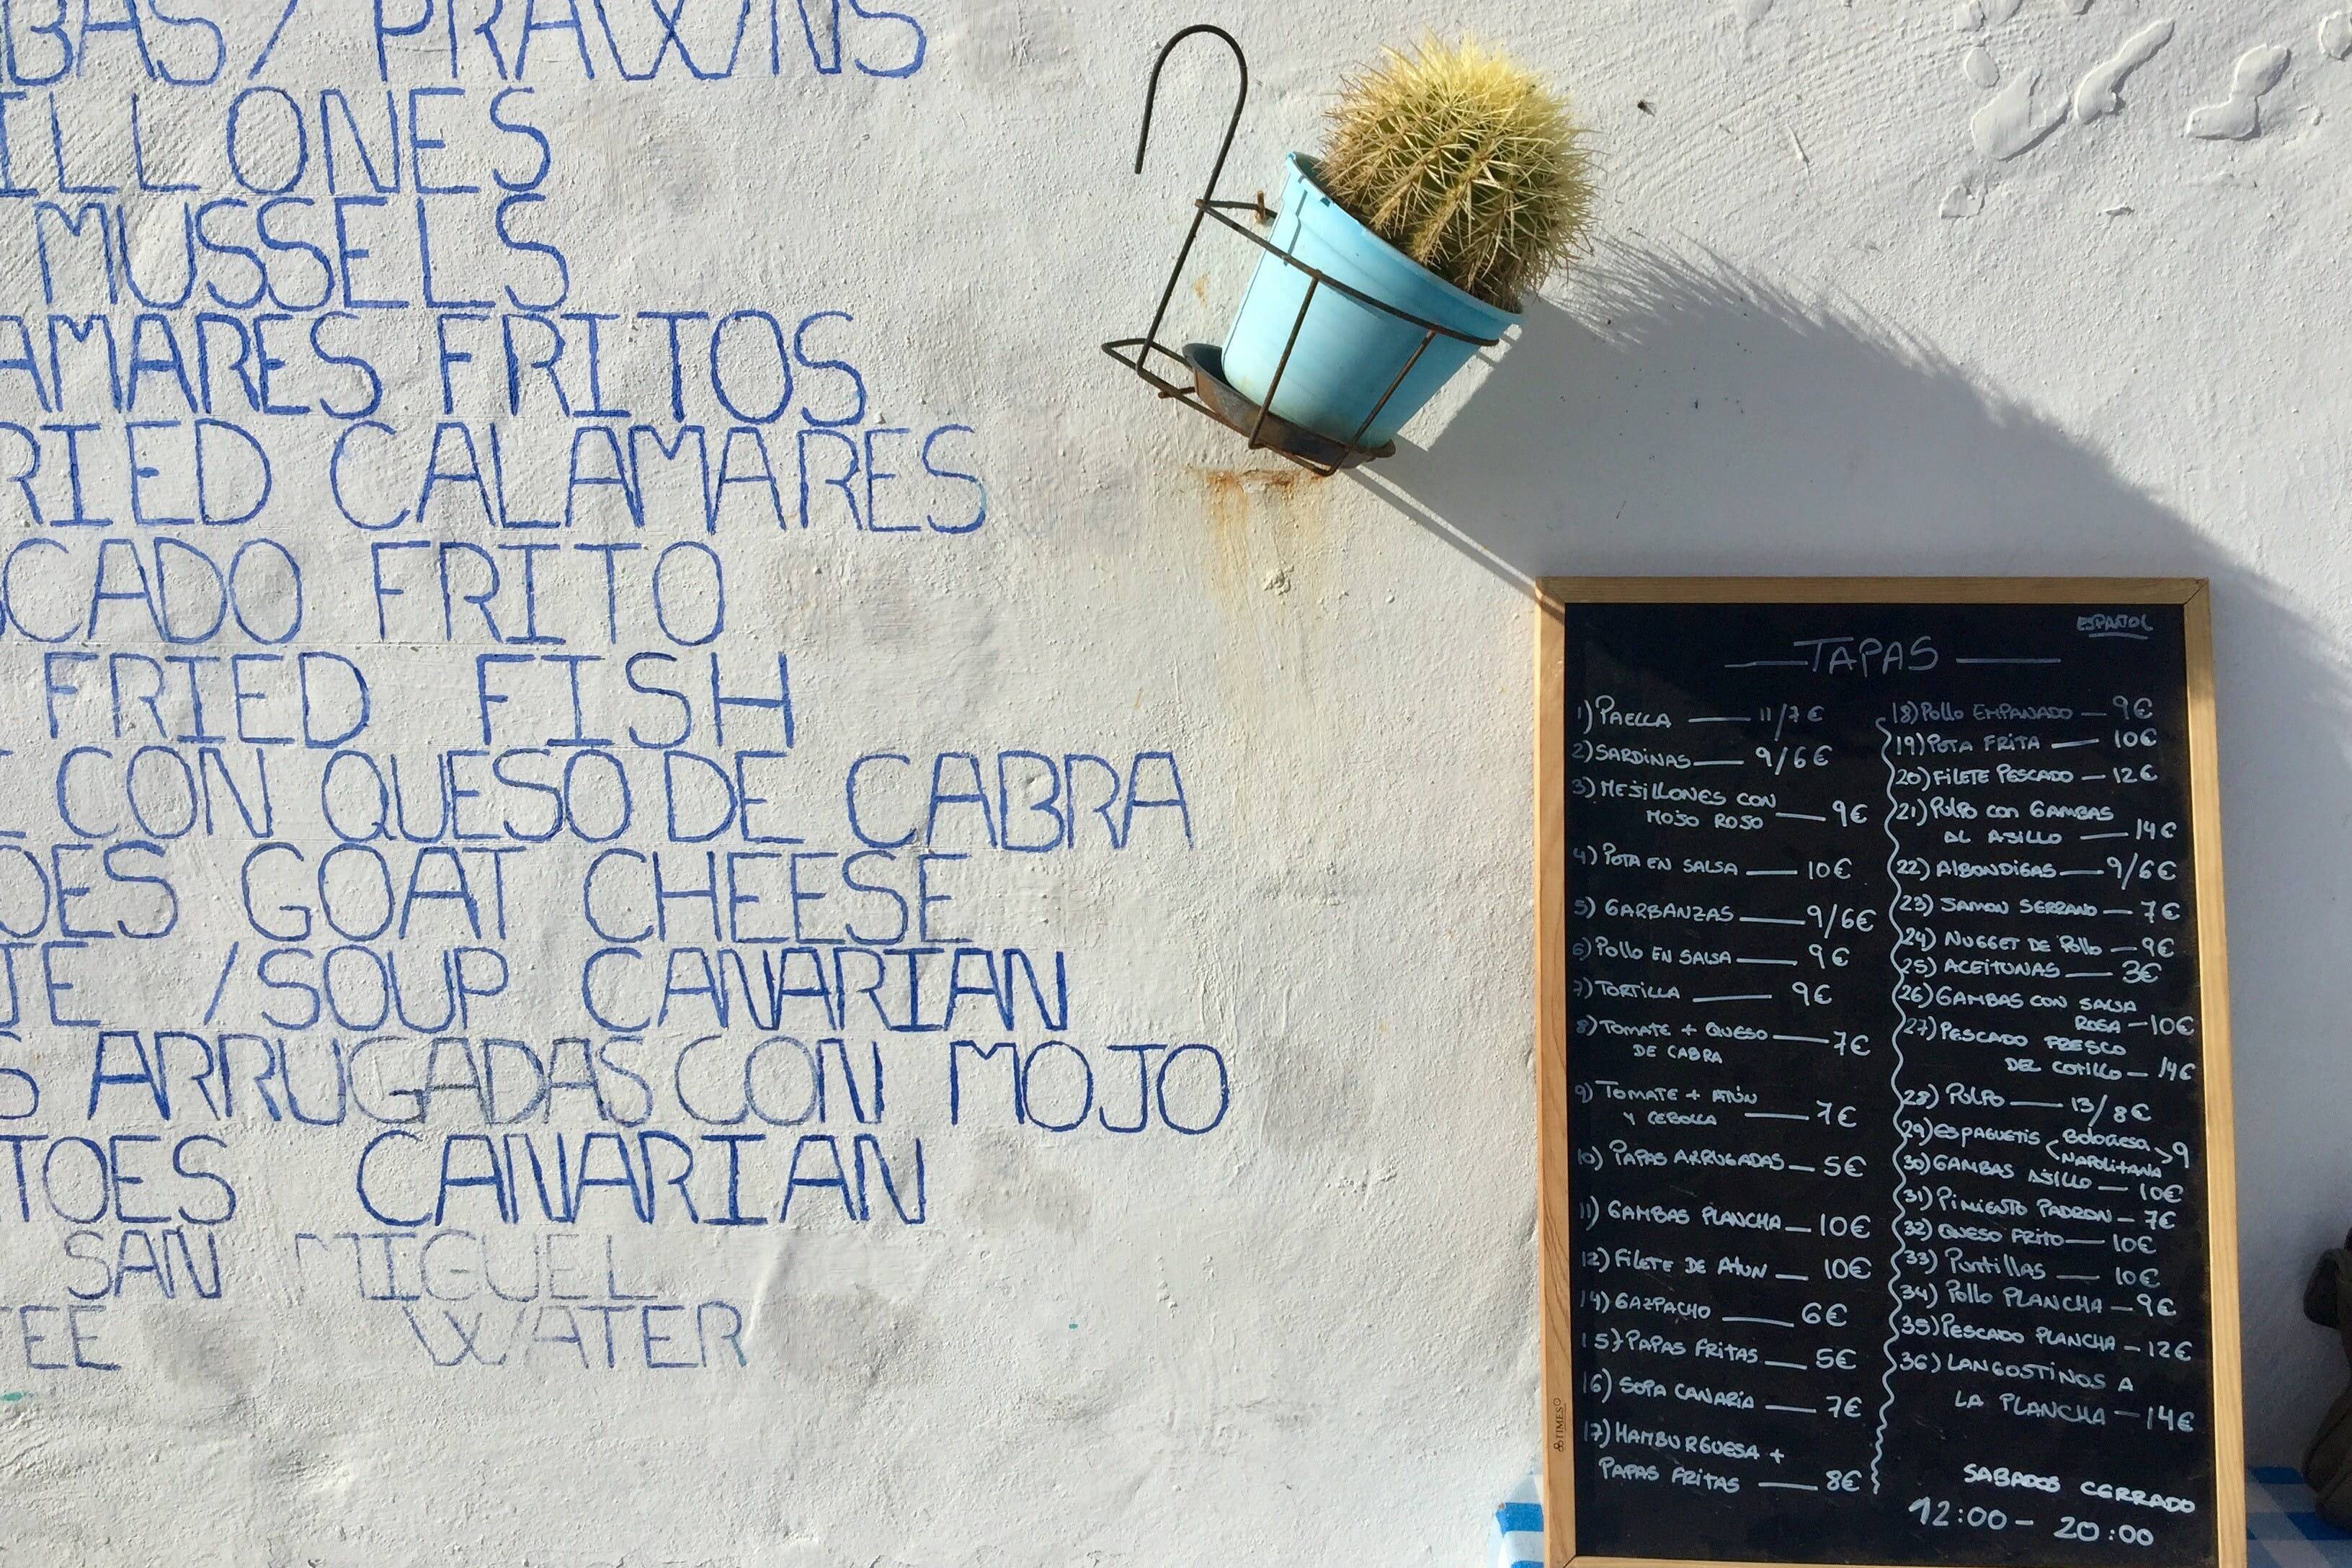 BAS/ PRAWNS
ILLONES
MUSSELS
AMARES FRITOS
RIED CALAMARES
CADO FRITO
FRIED FISH
CON QUESO DE CABRA
OES GOAT CHEESE
JE /SOUP CANARIAN
S ARRUGADAS CON MOJO
TOES CANARIAN
SAN MIGUEL
EE WATER
ESPAÑOL
TAPAS
1) PAELLA — 11/7€
2) SARDINAS — 9/6€
3) MEJILLONES CON
MOJO ROJO — 9€
4) POTA EN SALSA — 10€
5) GARBANZAS — 9/6€
6) POLLO EN SALSA — 9€
7) TORTILLA — 9€
8) TOMATE + QUESO
DE CABRA — 7€
9) TOMATE + ATÚN
Y CEBOLLA — 7€
10) PAPAS ARRUGADAS — 5€
11) GAMBAS PLANCHA — 10€
12) FILETE DE ATUN — 10€
14) GAZPACHO — 6€
15) PAPAS FRITAS — 5€
16) SOPA CANARIA — 7€
17) HAMBURGUESA +
PAPAS FRITAS — 8€
18) POLLO EMPANADO — 9€
19) POTA FRITA — 10€
20) FILETE PESCADO — 12€
21) PULPO CON GAMBAS
AL AJILLO — 14€
22) ALBONDIGAS — 9/6€
23) JAMON SERRANO — 7€
24) NUGGET DE POLLO — 9€
25) ACEITUNAS — 3€
26) GAMBAS CON SALSA
ROSA — 10€
27) PESCADO FRESCO
DEL COTILLO — 14€
28) PULPO — 13/8€
29) ESPAGUETIS BOLOGNESA 9
NAPOLITANA
30) GAMBAS AJILLO — 10€
31) PIMIENTO PADRON — 7€
32) QUESO FRITO — 10€
33) PUNTILLAS — 10€
34) POLLO PLANCHA — 9€
35) PESCADO PLANCHA — 12€
36) LANGOSTINOS A
LA PLANCHA — 14€
SABADOS CERRADO
12:00 - 20:00
TIMES